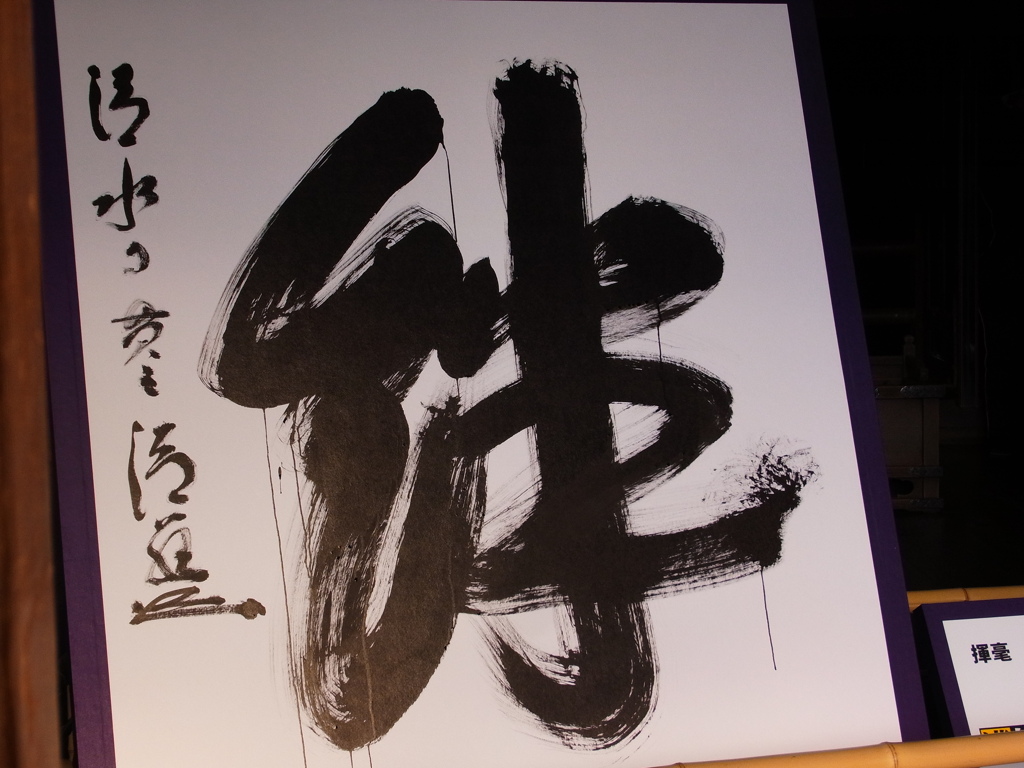 絆
清水寺貫主清範
揮毫